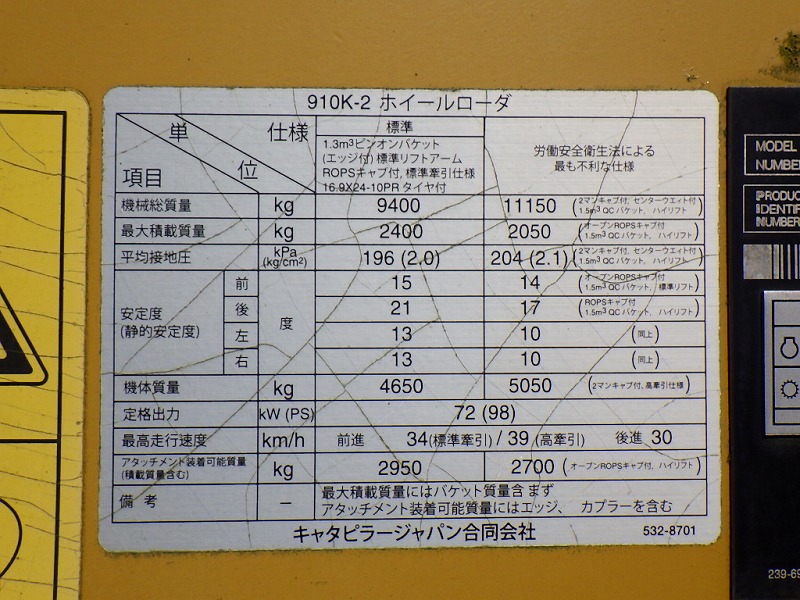 910K-2 ホイールローダ
単位
仕様
項目
標準
1.3m³ピンオンバケット
(エッジ付) 標準リフトアーム
ROPSキャブ付, 標準牽引仕様
16.9X24-10PR タイヤ付
労働安全衛生法による
最も不利な仕様
機械総質量 kg 9400 11150 (2マンキャブ付, センターウエイト付 1.5m³ QC バケット, ハイリフト)
最大積載質量 kg 2400 2050 (オープンROPSキャブ付 1.5m³ QC バケット, ハイリフト)
平均接地圧 kPa (kg/cm²) 196 (2.0) 204 (2.1) (2マンキャブ付, センターウエイト付 1.5m³ QC バケット, ハイリフト)
安定度
(静的安定度)
度
前 15 14 (オープンROPSキャブ付 1.5m³ QC バケット, 標準リフト)
後 21 17 (ROPSキャブ付 1.5m³ QC バケット, ハイリフト)
左 13 10 (同上)
右 13 10 (同上)
機体質量 kg 4650 5050 (2マンキャブ付, 高牽引仕様)
定格出力 kW (PS) 72 (98)
最高走行速度 km/h 前進 34(標準牽引) / 39 (高牽引) 後進 30
アタッチメント装着可能質量
(積載質量含む) kg 2950 2700 (オープンROPSキャブ付, ハイリフト)
備考 — 最大積載質量にはバケット質量含まず
アタッチメント装着可能質量にはエッジ、 カプラーを含む
キャタピラージャパン合同会社
532-8701
MODEL
NUMBER
PRODUC
IDENTIF
NUMBER
239-69